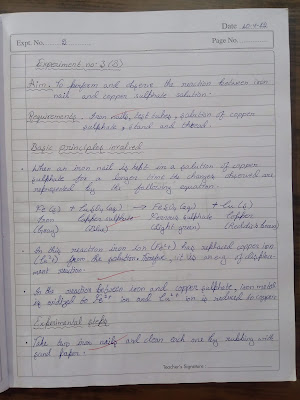 Date 20-4-12
Expt. No. 2
Page No.
Experiment no: 3 (B)
Aim: To perform and observe the reaction between iron
nail and copper sulphate solution.
Requirements: Iron nails, test tubes, solution of copper
sulphate, stand and thread.
Basic principles involved
When an iron nail is kept in a solution of copper
sulphate for a longer time its changes observed are
represented by the following equation.
Fe(s) + CuSO4(aq) → FeSO4(aq) + Cu(s)
Iron Copper sulphate Ferrous sulphate Copper
(Gray) (Blue) (Light green) (Reddish brown)
In this reaction iron ion (Fe2+) has replaced copper ion
(Cu2+) from the solution. Therefore, it is an e.g. of displace-
ment reaction.
In the reaction between iron and copper sulphate, iron metal
is oxidized to Fe2+ ion and Cu2+ ion is reduced to copper.
Experimental steps
Take two iron nails and clean each one by rubbing with
sand paper.
Teacher's Signature